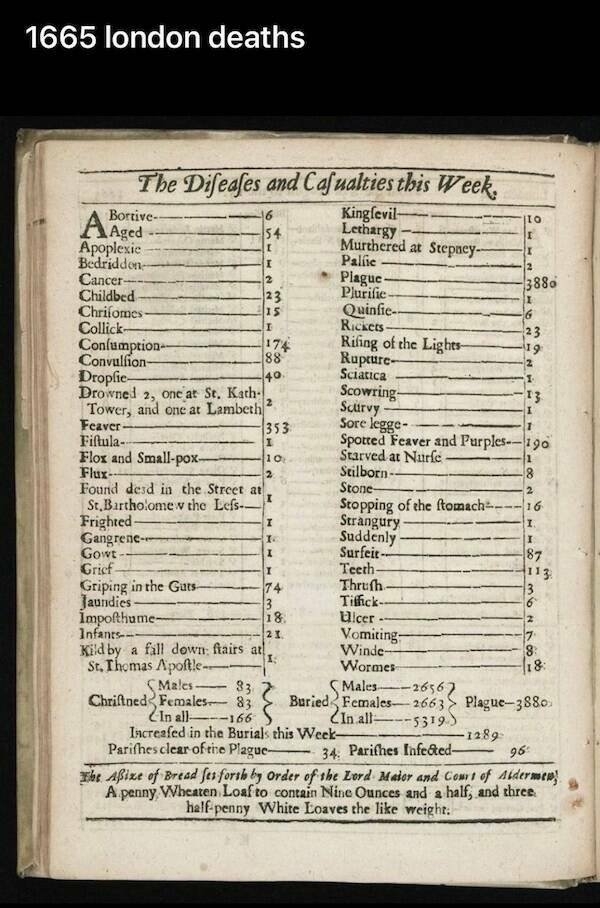 1665 london deaths
The Diſeaſes and Caſualties this Week.
ABortive 6
Aged 54
Apoplexie 1
Bedridden 1
Cancer 2
Childbed 23
Chriſomes 15
Collick 1
Conſumption 174
Convulſion 88
Dropſie 40
Drowned 2, one at St. Kath-
Tower, and one at Lambeth 2
Feaver 353
Fiſtula 1
Flox and Small-pox 10
Flux 2
Found dead in the Street at
St. Bartholomew the Leſs 1
Frighted 1
Gangrene 1
Gowt 1
Grief 1
Griping in the Guts 74
Jaundies 3
Impoſthume 18
Infants 21
Kild by a fall down ſtairs at
St. Thomas Apoſtle 1
Kingſevil 10
Lethargy 1
Murthered at Stepney 1
Palſie 2
Plague 3880
Pluriſie 1
Quinſie 6
Rickets 23
Riſing of the Lights 19
Rupture 2
Sciatica 1
Scowring 13
Scurvy 1
Sore legge 1
Spotted Feaver and Purples 190
Starved at Nurſe 1
Stilborn 8
Stone 2
Stopping of the ſtomach 16
Strangury 1
Suddenly 1
Surfeit 87
Teeth 113
Thruſh 3
Tiſſick 6
Ulcer 2
Vomiting 7
Winde 8
Wormes 18
Males 83
Chriſtned Females 83
In all 166
Males 2656
Buried Females 2663
In all 5319
Plague 3880
Increaſed in the Burials this Week 1289
Pariſhes clear of the Plague 34 Pariſhes Infected 96
The Aſſize of Bread ſet forth by Order of the Lord Maior and Court of Aldermen,
A penny Wheaten Loaf to contain Nine Ounces and a half, and three
half-penny White Loaves the like weight.